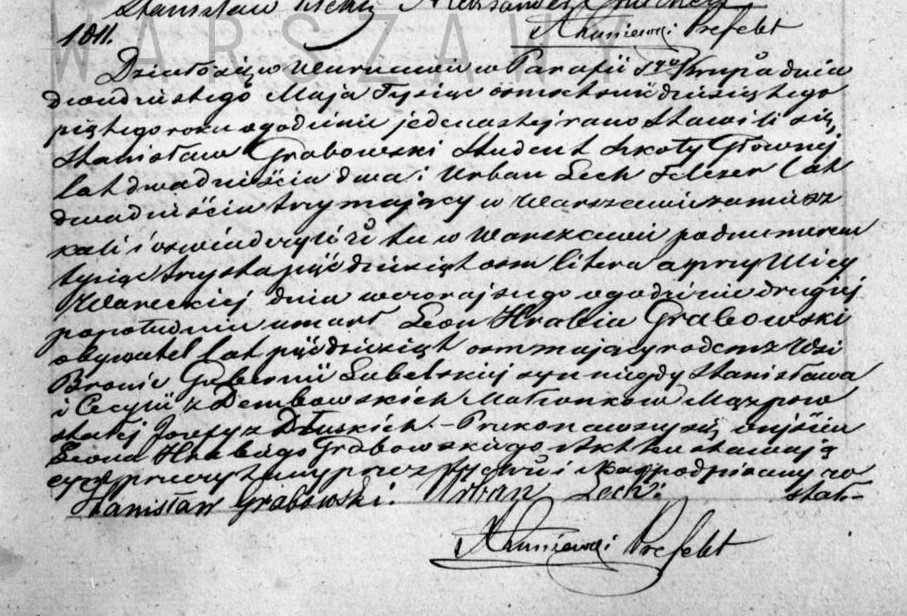 Stanisław Aleksander
1011.
WARSZAWY
Prefekt
Działo się w Warszawie w Parafii Sgo Krzyża dnia
dwudziestego Maja Tysiąc ośmset sześćdziesiątego
piątego roku o godzinie jedenastej rano Stawili się,
Stanisław Grabowski Student Szkoły Głównej
lat dwadzieścia dwa i Urban Lech Felczer lat
dwadzieścia trzy mający w Warszawie zamiesz
kali i oświadczyli iż tu w Warszawie pod numerem
tysiąc trzysta pięćdziesiąt ośm litera a przy Ulicy
Wareckiej dnia wczorajszego o godzinie drugiej
popołudniu umarł Leon Hrabia Grabowski
obywatel lat pięćdziesiąt ośm mający rodem z Wsi
Bronic Gubernii Lubelskiej syn niegdy Stanisława
i Cecylii z Dembowskich Małżonków Mąż pow
stałej Józefy z Dłuskich. – Przekonawszy się o zejściu
Leona Hrabiego Grabowskiego Akt ten stawają
cym przeczytany przez i Nas podpisany zo
Stanisław Grabowski. Urban Lech. stał. –
Prefekt